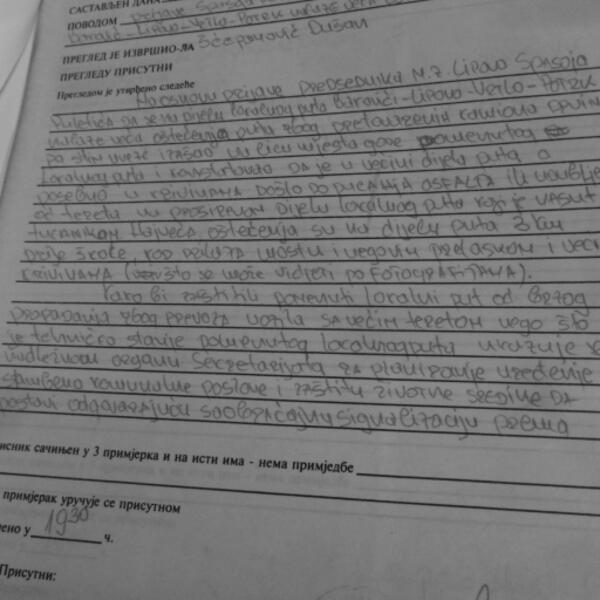 САСТАВЉЕН ДАНА
ПОВОДОМ prijave Spasoja
Baravci-Lipovo-Vrilo-Potrk
ПРЕГЛЕД ЈЕ ИЗВРШИО-ЛА Šćepanović Dušan
ПРЕГЛЕДУ ПРИСУТНИ
Прегледом је утврђено следеће
Na osnovu prijave predsednika M.Z. Lipovo Spasoja
da se na dijelu lokalnog puta Baravci-Lipovo-Vrilo-Potrk
nalaze veća oštećenja puta zbog preticanja kamiona
po istim sam izašao na lice mjesta gore pomenutog
lokalnog puta i konstatovao da je u većini dijela puta a
posebno u krivinama došlo do pucanja asfalta ili
od tereta u proširenom dijelu lokalnog puta koji je nasut
tucanikom Najveća oštećenja su na dijelu puta 3km
prije škole, kod prilaza mostu i njegovim prelaskom i već
krivinama ( što se može vidjeti po fotografijama).
Kako bi zaštitili pomenuti lokalni put od brzog
propadanja zbog prevoza vozila sa većim teretom nego što
je tehničko stanje pomenutog lokalnog puta ukazuje
nadležnom organu Sekretarijata za planiranje uređenje
stambeno komunalne poslove i zaštitu životne sredine da
postavi odgovarajuću saobraćajnu signalizaciju prema
исник сачињен у 3 примјерка и на исти има - нема примједбе
примјерак уручује се присутном
ено у 19 30 ч.
Присутни: